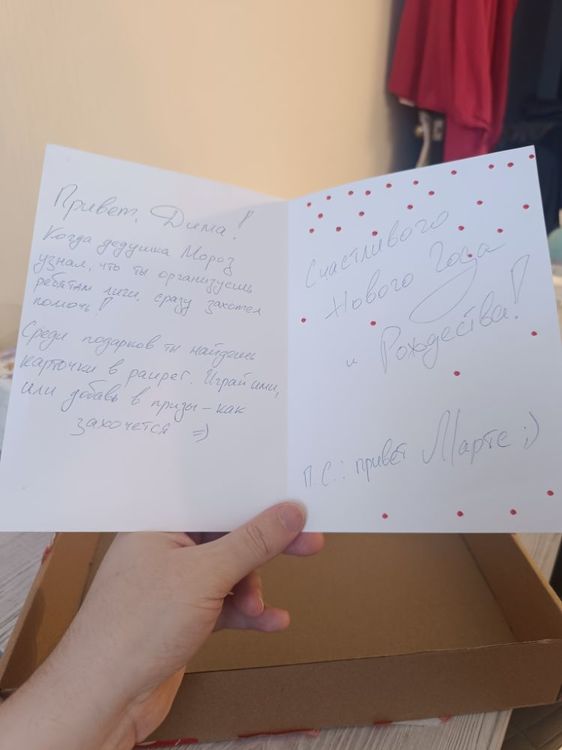 Привет, Дима!
Когда дедушка Мороз
узнал, что ты организуешь
ребятам лиги, сразу захотел
помочь!
Среди подарков ты найдёшь
карточки в pauper. Играй ими,
или добавь в призы - как
захочется =)
Счастливого
Нового Года
и Рождества!
П.С.: привет Марте ;)